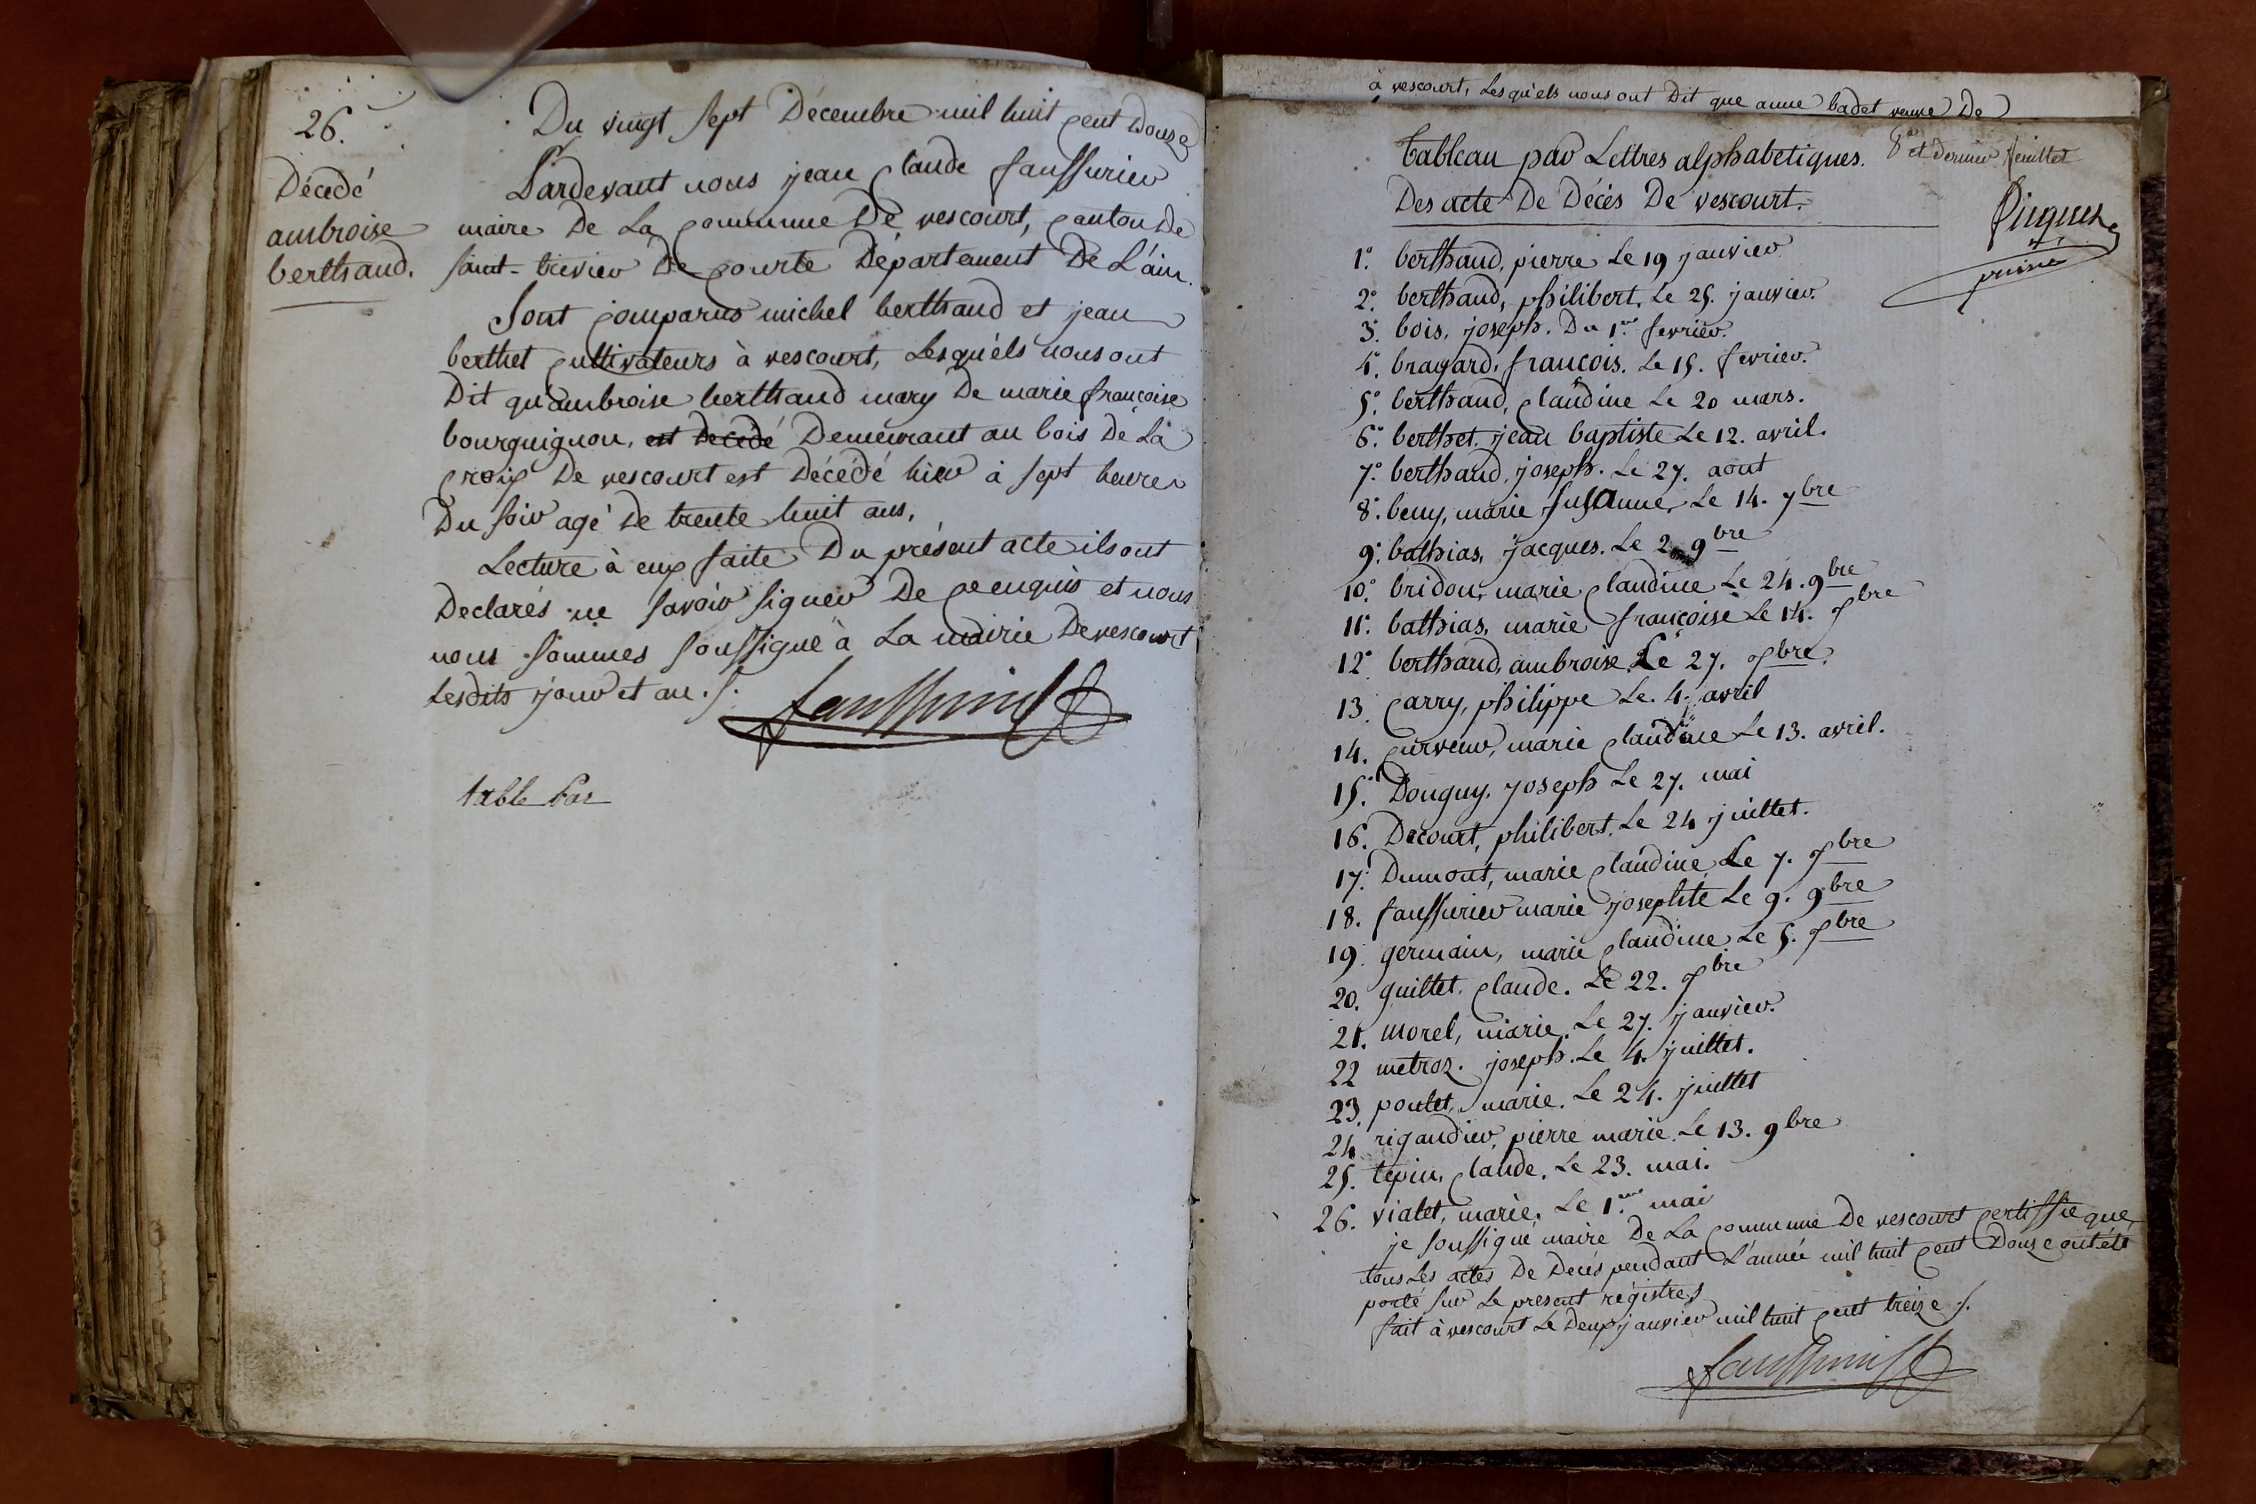 26.
Décedé
ambroise
berthaud.
Du vingt sept Décembre mil huit cent Douze
Pardevant nous jean claude faussurier
maire De La commune De vescourt, canton De
saint-trivier De courte Département De L'ain.
Sont comparus michel berthaud et jean
berthet cultivateurs à vescourt, Lesquéls nous ont
Dit qu'ambroise berthaud mary De marie françoise
bourguignon, est Décédé Demeurant au bois De La
croix De vescourt est Décédé hier à sept heures
Du soir agé De trente huit ans.
Lecture à eux faite Du présent acte ils ont
Declarés ne savoir signer De ce enquis et nous
nous sommes soussigné à La mairie De vescourt
Lesdits jour et an.
faussurier
table par
à vescourt, Lesquéls nous ont Dit que anne badet veuve De
Tableau par Lettres alphabetiques.
8e et dernier feuillet
Des acte De Décès De vescourt.
1º. berthaud, pierre Le 19 janvier.
2º. berthaud, philibert. Le 25. janvier.
3º. bois, joseph. Du 1er fevrier.
4º. bragard, françois. Le 15. fevrier.
5º. berthaud, claudine Le 20 mars.
6º. berthet, jean baptiste Le 12. avril.
7º. berthaud, joseph. Le 27. aout
8º. beny, marie susanne, Le 14. 7bre
9º. bathias, jacques. Le 2 9bre
10º. bridon, marie claudine Le 24. 9bre
11º. bathias, marie françoise Le 14. xbre
12º. berthaud, ambroise Le 27. xbre.
13. carry, philippe Le 4. avril
14. curveur, marie claudine Le 13. avril.
15. Donguy, joseph Le 27. mai
16. Decourt, philibert. Le 24 juillet.
17. Dumont, marie claudine, Le 7. xbre
18. faussurier marie josephte Le 9. 9bre
19. germain, marie claudine. Le 5. xbre
20. guillet, claude. Le 22. xbre
21. morel, marie. Le 27. janvier.
22 metroz. joseph. Le 4. juillet.
23. poulet, marie. Le 24. juillet
24 rigaudier, pierre marie. Le 13. 9bre
25. tepin, claude. Le 23. mai.
26. vialet, marie. Le 1er mai
je soussigné maire De La commune De vescourt certiffie que
tous Les actes De Decés pendant L'année mil huit cent Douze ont été
porté sur Le présent régistre,
fait à vescourt Le Deux janvier mil huit cent treize.
faussurier